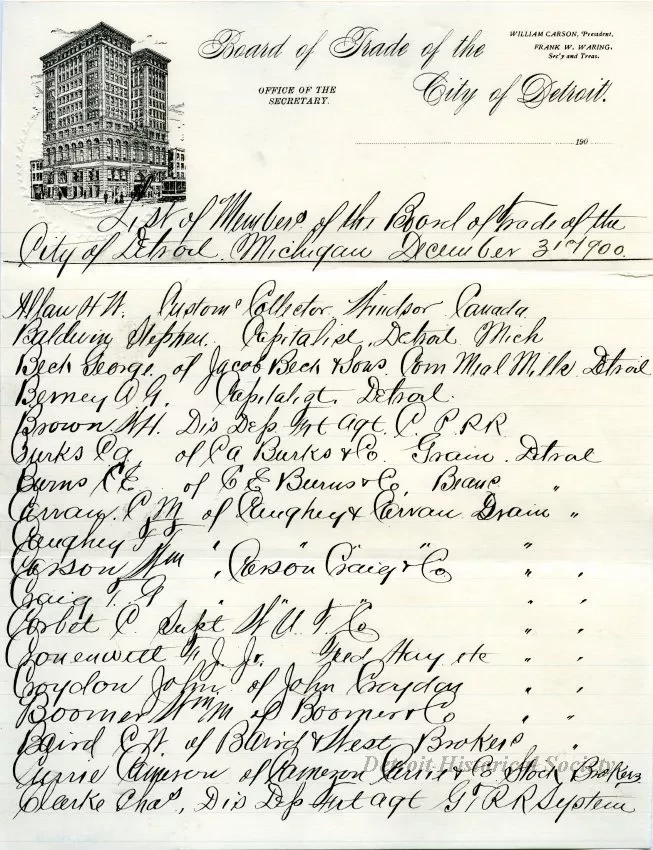 WILLIAM CARSON, President.
FRANK W. WARING,
Sec'y and Treas.
Board of Trade of the
City of Detroit.
OFFICE OF THE
SECRETARY.
190
List of Members of the Board of Trade of the
City of Detroit Michigan December 31st 1900.
Allan H W. Customs Collector Windsor Canada
Baldwin Stephen. Capitalist, Detroit Mich
Beck George of Jacob Beck & Sons Corn Meal Mills Detroit
Berney A G. Capitalist, Detroit.
Brown WH. Dis Des Frt Agt. C. P. R.R.
Burks Ca of Ca Burks & Co. Grain. Detroit
Burns C E. of C E Burns & Co, Beans "
Carran. C M of Caughey & Carran Grain "
Caughey
Carson Wm " Carson Craig & Co " "
Craig " " " "
Corbet C. Supt W U T Co " "
Cronenwett Jr. Feed Hay etc " "
Croydon John of John Croydon " "
Boomer Wm of Boomer & Co " "
Baird C W. of Baird & West Brokers "
Currie Cameron of Cameron Currie & Co Stock Brokers
Clarke Chas, Dis Des Frt agt G T R R System
Detroit Historical Society